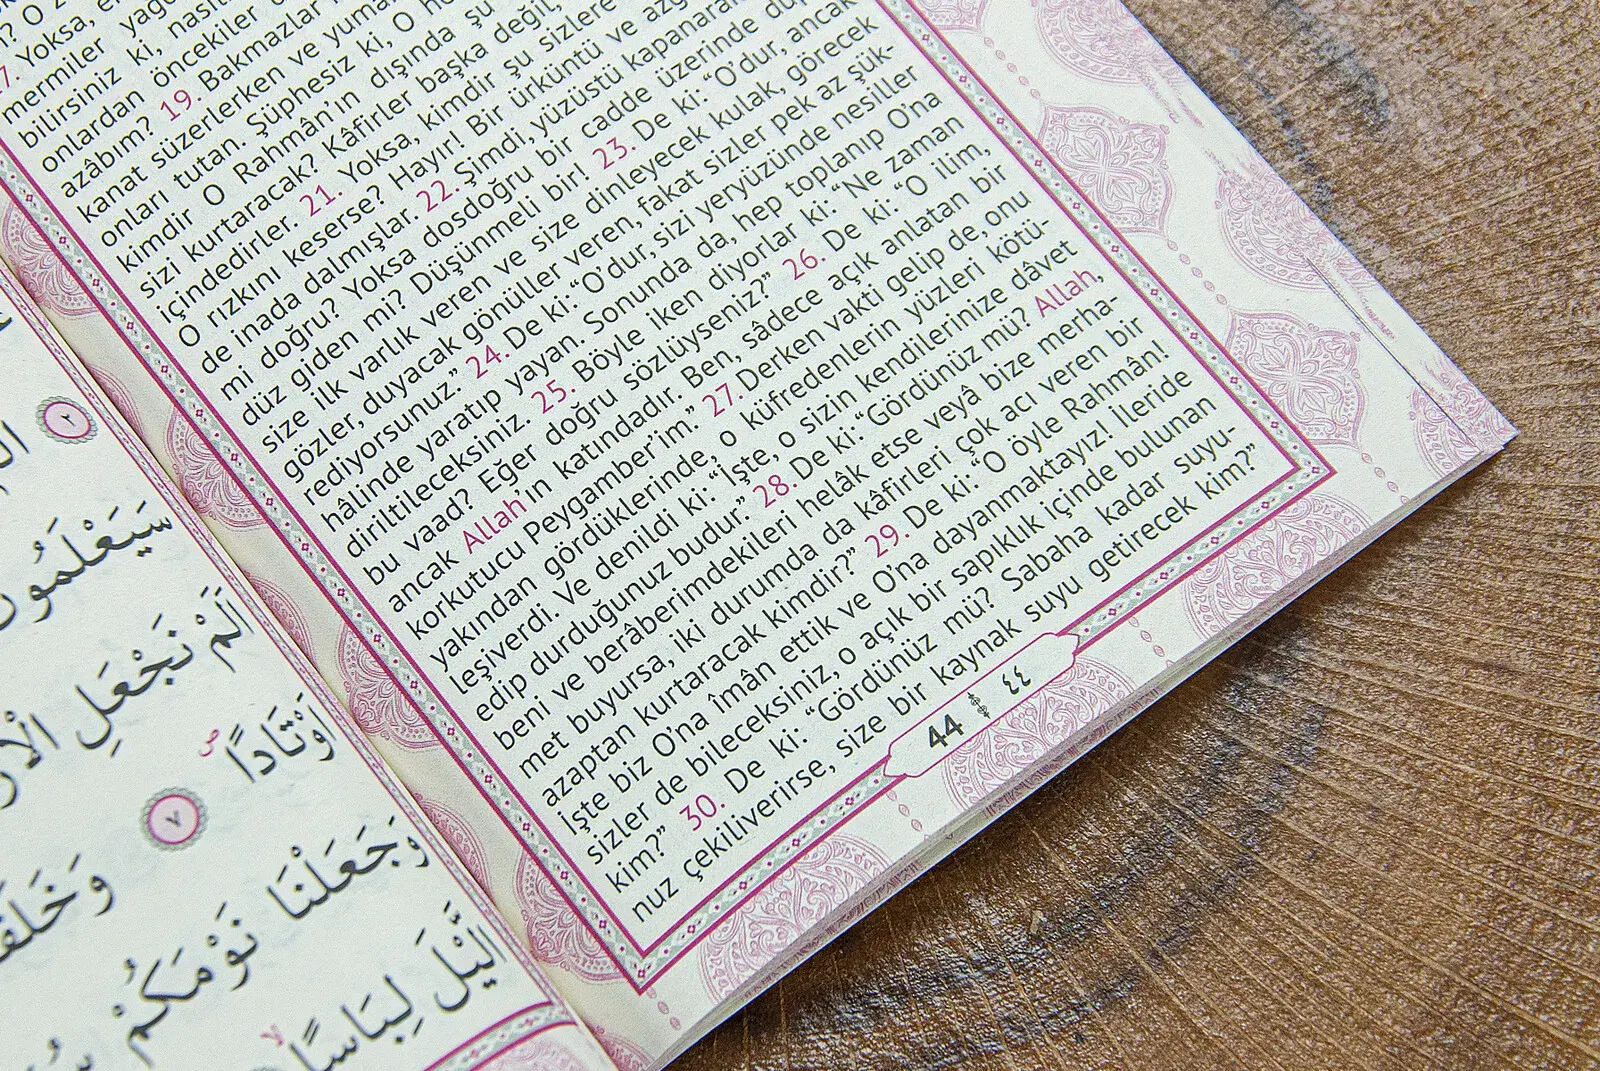 17. Yoksa,
mermiler
bilirsiniz ki,
onlardan öncekiler
azâbım? 19. Bakmazlar
kanat süzerlerken ve
onları tutan. Şüphesiz ki, O
kimdir O Rahmân'ın dışında şu
sizi kurtaracak? Kâfirler başka değil,
içindedirler. 21. Yoksa, kimdir şu sizlere
O rızkını keserse? Hayır! Bir ürküntü ve
de inada dalmışlar. 22. Şimdi, yüzüstü kapanarak
mi doğru? Yoksa dosdoğru bir cadde üzerinde
düz giden mi? Düşünmeli bir! 23. De ki: “O'dur, ancak
size ilk varlık veren ve size dinleyecek kulak, görecek
gözler, duyacak gönüller veren, fakat sizler pek az şük-
rediyorsunuz.” 24. De ki: “O'dur, sizi yeryüzünde nesiller
hâlinde yaratıp yayan. Sonunda da, hep toplanıp O'na
diriltileceksiniz. 25. Böyle iken diyorlar ki: “Ne zaman
bu vaad? Eğer doğru sözlüyseniz?” 26. De ki: “O ilim,
ancak Allah'ın katındadır. Ben, sâdece açık anlatan bir
korkutucu Peygamber'im.” 27. Derken vakti gelip de, onu
yakından gördüklerinde, o küfredenlerin yüzleri kötü-
leşiverdi. Ve denildi ki: “İşte, o sizin kendilerinize dâvet
edip durduğunuz budur.” 28. De ki: “Gördünüz mü? Allah,
beni ve berâberimdekileri helâk etse veyâ bize merha-
met buyursa, iki durumda da kâfirleri çok acı veren bir
azaptan kurtaracak kimdir?” 29. De ki: “O öyle Rahmân!
İşte biz O'na îmân ettik ve O'na dayanmaktayız! İleride
sizler de bileceksiniz, o açık bir sapıklık içinde bulunan
kim?” 30. De ki: “Gördünüz mü? Sabaha kadar suyu-
nuz çekiliverirse, size bir kaynak suyu getirecek kim?”
44 ٤٤
٢
سَيَعْلَمُونَ
اَلَمْ نَجْعَلِ الْاَرْ
اَوْتَادًا ٧
وَخَلَقْ
وَجَعَلْنَا نَوْمَكُمْ
الَّيْلَ لِبَاسًا